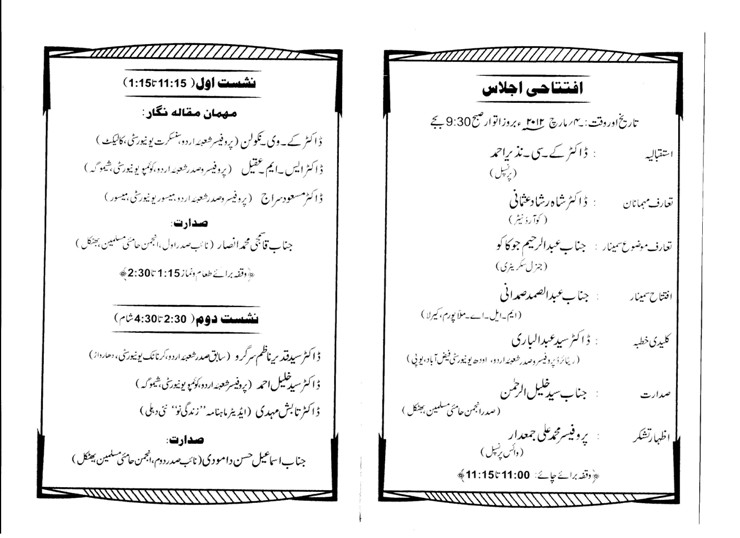 افتتاحی اجلاس
تاریخ اور وقت: ۴/مارچ ۲۰۱۲ء بروز اتوار صبح 9:30 بجے
استقبالیہ : ڈاکٹر کے۔سی۔نذیر احمد
(پرنسپل)
تعارف مہمانان : ڈاکٹر شاہ رشاد عثمانی
(کوآرڈینٹر)
تعارف موضوع سمینار : جناب عبدالرحیم جوکاکو
(جنرل سکریٹری)
افتتاح سمینار : جناب عبدالصمد صمدانی
(ایم۔ایل۔اے۔ملاپورم، کیرلا)
کلیدی خطبہ : ڈاکٹر سید عبدالباری
(ریٹائرڈ پروفیسر و صدر شعبۂ اردو، اودھ یونیورسٹی فیض آباد، یوپی)
صدارت : جناب سید خلیل الرحمٰن
(صدر انجمن حامئ مسلمین بھٹکل)
اظہار تشکر : پروفیسر محمد علی جمعدار
(وائس پرنسپل)
﴿وقفہ برائے چائے: 11:00 تا 11:15﴾
نشست اول (11:15 تا 1:15)
مہمان مقالہ نگار:
ڈاکٹر کے۔وی۔نکولن (پروفیسر شعبۂ اردو، سنسکرت یونیورسٹی، کالیکٹ)
ڈاکٹر ایس۔ایم۔عقیل (پروفیسر و صدر شعبۂ اردو، کوئمپو یونیورسٹی، شیموگہ)
ڈاکٹر مسعود سراج (پروفیسر و صدر شعبۂ اردو، میسور یونیورسٹی، میسور)
صدارت:
جناب قاسمجی محمد انصار (نائب صدر اول، انجمن حامئ مسلمین، بھٹکل)
﴿وقفہ برائے طعام و نماز 1:15 تا 2:30﴾
نشست دوم (2:30 تا 4:30 شام)
ڈاکٹر سید قدیر ناظم سرگرو (سابق صدر شعبۂ اردو، کرناٹک یونیورسٹی، دھارواڑ)
ڈاکٹر سید خلیل احمد (پروفیسر شعبۂ اردو، کوئمپو یونیورسٹی، شیموگہ)
ڈاکٹر تابش مہدی (ایڈیٹر ماہنامہ "زندگی نو" نئی دہلی)
صدارت:
جناب اسماعیل حسن دامودی (نائب صدر دوم، انجمن حامئ مسلمین بھٹکل)